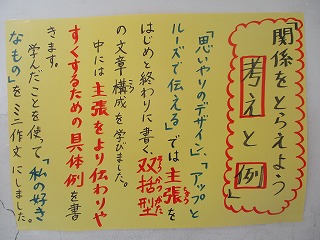 「関係をとらえよう
考えと例」
「思いやりのデザイン」、「アップと
ルーズで伝える」では主張を
はじめと終わりに書く、双括型
の文章構成を学びました。
中には主張をより伝わりや
すくするための具体例を書
きます。
学んだことを使って、「私の好き
なもの」をミニ作文にしました。